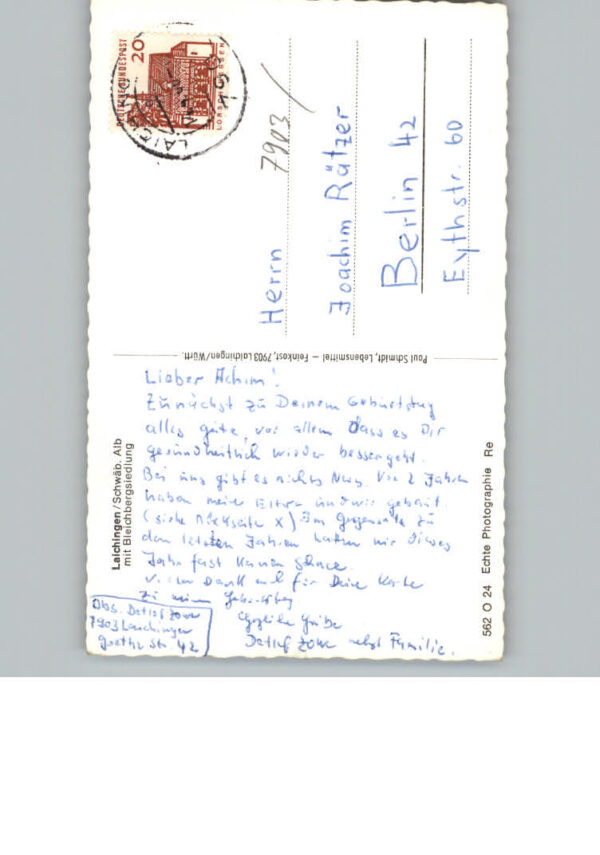 DEUTSCHE BUNDESPOST
20
LORSCH HESSEN
7903
Herrn
Joachim Rätzer
Berlin 42
Eythstr. 60
Paul Schmidt, Lebensmittel – Feinkost, 7903 Laichingen/Württ.
Laichingen/Schwäb. Alb
mit Bleichbergsiedlung
Lieber Achim!
Zunächst zu Deinem Geburtstag
alles gute, vor allem dass es Dir
gesundheitlich wieder bessergeht.
Bei uns gibt es nichts Neues. Vor 2 Jahren
haben meine Eltern und wir gebaut.
(siehe Rückseite X) Im Gegensatz zu
den letzten Jahren hatten wir dieses
Jahr fast keinen Schnee.
Vielen Dank auch für Deine Karte
zu meinem Geburtstag
Herzliche Grüße
Detlef nebst Familie.
Abs. Detlef
7903 Laichingen
Goethe Str. 42
562 O 24 Echte Photographie Re